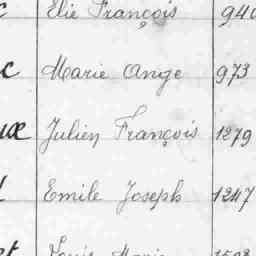 Elie François 940
Marie Ange 973
Julien François 1279
Emile Joseph 1247
Louis Marie